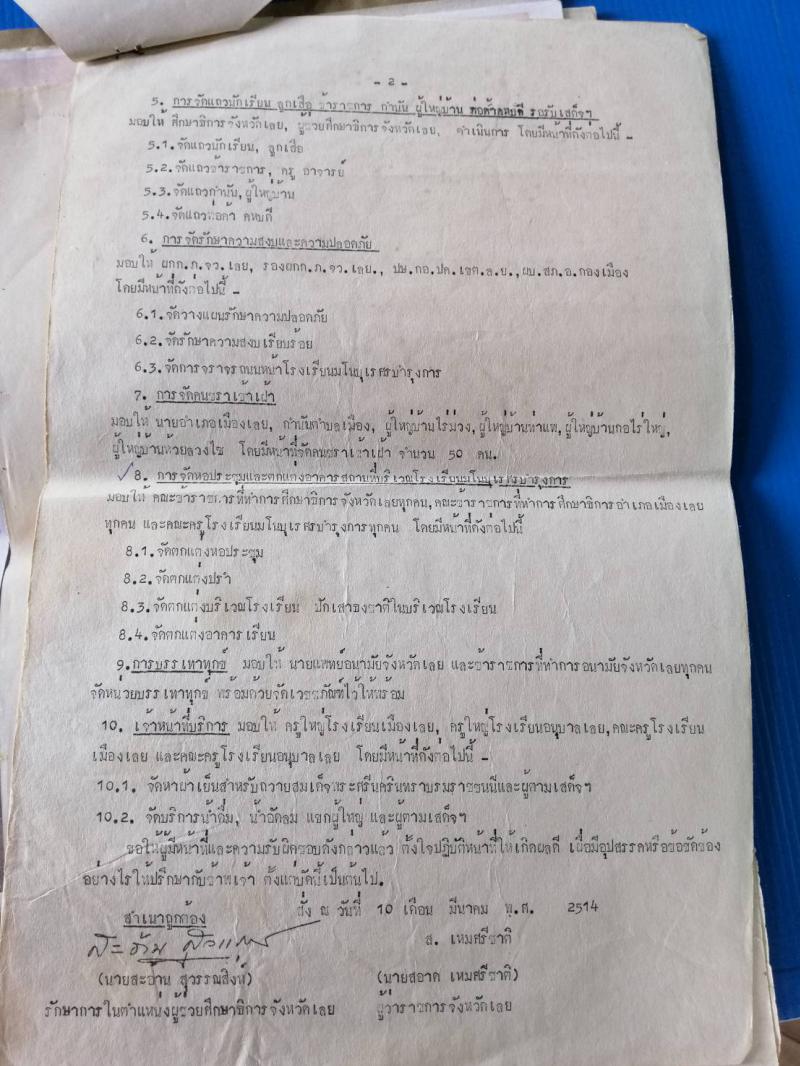 - 2 -
5. การจัดแถวนักเรียน ลูกเสือ ข้าราชการ กำนัน ผู้ใหญ่บ้าน พ่อค้าคหบดี รอรับเสด็จฯ
มอบให้ ศึกษาธิการจังหวัดเลย, ผู้ช่วยศึกษาธิการจังหวัดเลย, ดำเนินการ โดยมีหน้าที่ดังต่อไปนี้ -
5.1. จัดแถวนักเรียน, ลูกเสือ
5.2. จัดแถวข้าราชการ, ครู อาจารย์
5.3. จัดแถวกำนัน, ผู้ใหญ่บ้าน
5.4. จัดแถวพ่อค้า คหบดี
6. การจัดรักษาความสงบและความปลอดภัย
มอบให้ ผกก.ภ.จว.เลย, รองผกก.ภ.จว.เลย., ปษ.กอ.ปค.เขต.ล.ย.,ผบ.สภ.อ.กองเมือง
โดยมีหน้าที่ดังต่อไปนี้ -
6.1. จัดวางแผนรักษาความปลอดภัย
6.2. จัดรักษาความสงบเรียบร้อย
6.3. จัดการจราจรถนนหน้าโรงเรียนมโนบุเรศรบำรุงการ
7. การจัดคนชราเข้าเฝ้า
มอบให้ นายอำเภอเมืองเลย, กำนันตำบลเมือง, ผู้ใหญ่บ้านไร่ม่วง, ผู้ใหญ่บ้านท่าแพ, ผู้ใหญ่บ้านกอไร่ใหญ่,
ผู้ใหญ่บ้านห้วยลวงไซ โดยมีหน้าที่จัดคนชราเข้าเฝ้า จำนวน 50 คน.
8. การจัดหอประชุมและตกแต่งอาคารสถานที่บริเวณโรงเรียนมโนบุเรศรบำรุงการ
มอบให้ คณะข้าราชการที่ทำการศึกษาธิการจังหวัดเลยทุกคน, คณะข้าราชการที่ทำการศึกษาธิการอำเภอเมืองเลย
ทุกคน และคณะครูโรงเรียนมโนบุเรศรบำรุงการทุกคน โดยมีหน้าที่ดังต่อไปนี้
8.1. จัดตกแต่งหอประชุม
8.2. จัดตกแต่งปรำ
8.3. จัดตกแต่งบริเวณโรงเรียน ปักเสาธงชาติในบริเวณโรงเรียน
8.4. จัดตกแต่งอาคารเรียน
9. การบรรเทาทุกข์ มอบให้ นายแพทย์อนามัยจังหวัดเลย และข้าราชการที่ทำการอนามัยจังหวัดเลยทุกคน
จัดหน่วยบรรเทาทุกข์ พร้อมด้วยจัดเวชภัณฑ์ไว้ให้พร้อม
10. เจ้าหน้าที่บริการ มอบให้ ครูใหญ่โรงเรียนเมืองเลย, ครูใหญ่โรงเรียนอนุบาลเลย, คณะครูโรงเรียน
เมืองเลย และคณะครูโรงเรียนอนุบาลเลย โดยมีหน้าที่ดังต่อไปนี้ -
10.1. จัดหาผ้าเย็นสำหรับถวายสมเด็จพระศรีนครินทราบรมราชชนนีและผู้ตามเสด็จฯ
10.2. จัดบริการน้ำดื่ม, น้ำอัดลม แขกผู้ใหญ่ และผู้ตามเสด็จฯ
ขอให้ผู้มีหน้าที่และความรับผิดชอบดังกล่าวแล้ว ตั้งใจปฏิบัติหน้าที่ให้เกิดผลดี เมื่อมีอุปสรรคหรือข้อขัดข้อง
อย่างไรให้ปรึกษากับข้าพเจ้า ตั้งแต่บัดนี้เป็นต้นไป.
สั่ง ณ วันที่ 10 เดือน มีนาคม พ.ศ. 2514
สำเนาถูกต้อง
ส. เหมศรีชาติ
(นายสะอ้าน สุวรรณสิงห์) (นายสอาด เหมศรีชาติ)
รักษาการในตำแหน่งผู้ช่วยศึกษาธิการจังหวัดเลย ผู้ว่าราชการจังหวัดเลย